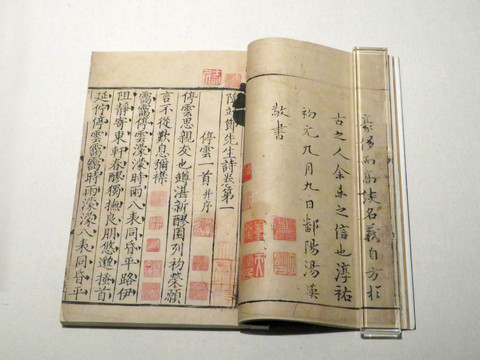 而高談名義自方於
古之人余未之信也淳祐
初元九月九日鄱陽湯漢
敬書
陶靖節先生詩卷第一
停雲一首并序
停雲思親友也罇湛新醪園列初榮願
言不從歎息彌襟
靄靄停雲濛濛時雨八表同昏平路伊
阻靜寄東軒春醪獨撫良朋悠邈搔首
延佇停雲靄靄時雨濛濛八表同昏平